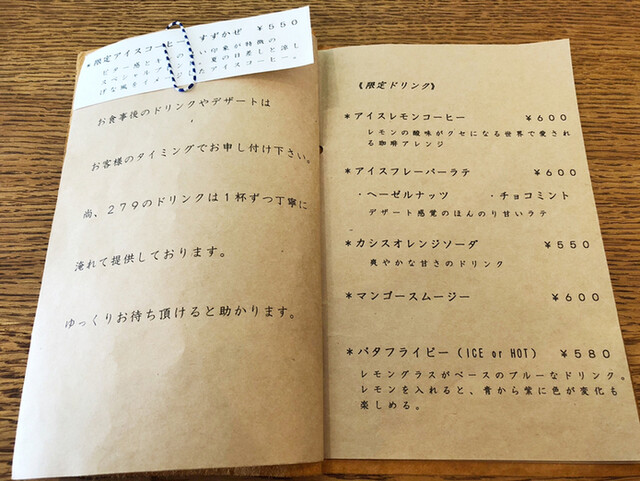 *限定アイスコーヒー すずかぜ ￥５５０
お食事後のドリンクやデザートは
お客様のタイミングでお申し付け下さい。
尚、２７９のドリンクは１杯ずつ丁寧に
淹れて提供しております。
ゆっくりお待ち頂けると助かります。
《限定ドリンク》
*アイスレモンコーヒー ￥６００
レモンの酸味がクセになる世界で愛され
る珈琲アレンジ
*アイスフレーバーラテ ￥６００
・ヘーゼルナッツ ・チョコミント
デザート感覚のほんのり甘いラテ
*カシスオレンジソーダ ￥５５０
爽やかな甘さのドリンク
*マンゴースムージー ￥６００
*バタフライピー（ICE or HOT） ￥５８０
レモングラスがベースのブルーなドリンク。
レモンを入れると、青から紫に色が変化も
楽しめる。